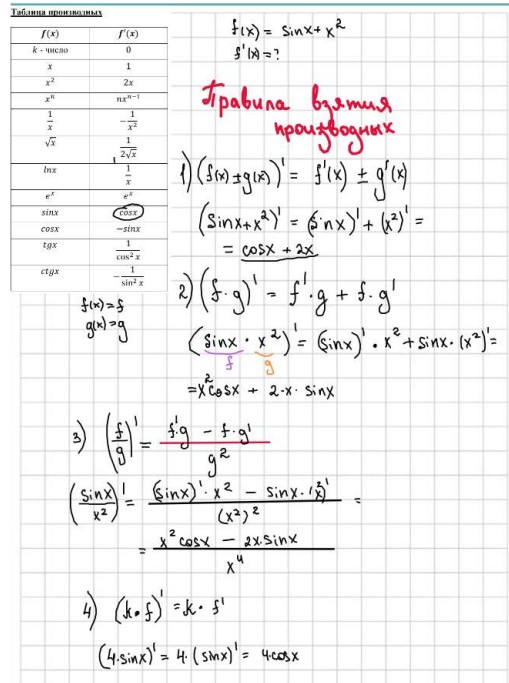 Таблица производных
f(x) f'(x)
k - число 0
x 1
x² 2x
xⁿ nxⁿ⁻¹
1/x -1/x²
√x 1/(2√x)
lnx 1/x
eˣ eˣ
sinx cosx
cosx -sinx
tgx 1/cos² x
ctgx -1/sin² x
f(x)=f
g(x)=g
f(x) = sinx + x²
f'(x) = ?
Правила взятия
производных
1) (f(x) ± g(x))' = f'(x) ± g'(x)
(sinx + x²)' = (sinx)' + (x²)' =
= cosx + 2x
2) (f · g)' = f' · g + f · g'
(sinx · x²)' = (sinx)' · x² + sinx · (x²)' =
f g
= x² cosx + 2 · x · sinx
3) (f/g)' = (f'·g - f·g')/g²
(sinx/x²)' = ((sinx)' · x² - sinx · (x²)')/(x²)² =
= (x² cosx - 2x·sinx)/x⁴
4) (k · f)' = k · f'
(4·sinx)' = 4 · (sinx)' = 4·cosx